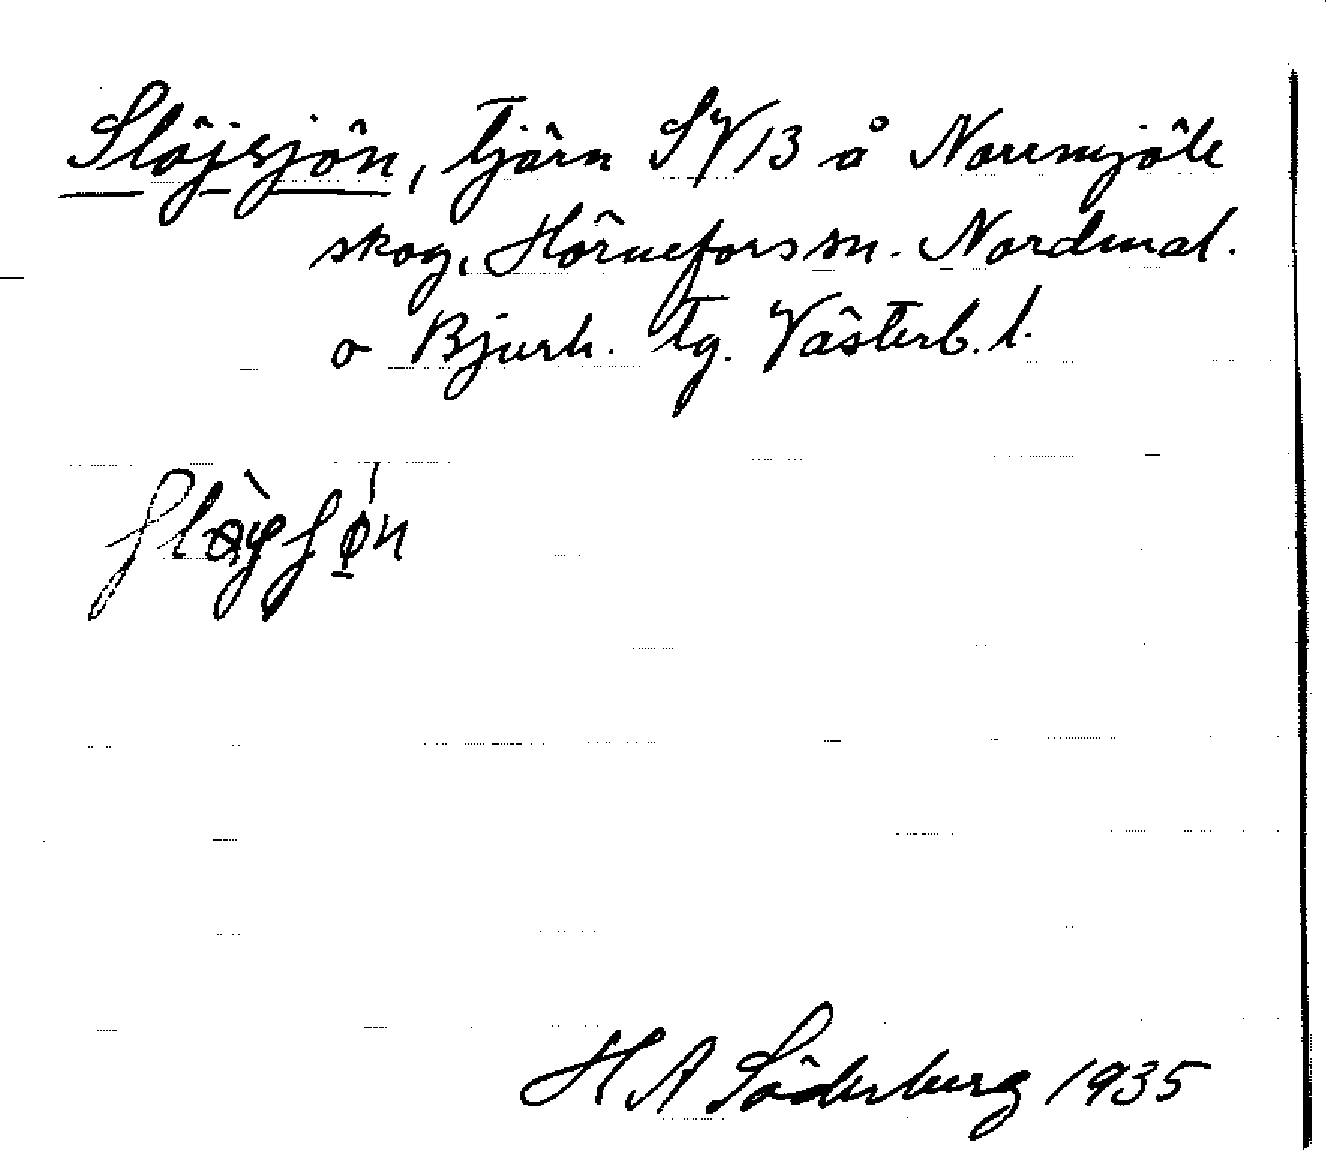 Slöjsjön, tjärn SV 13 å Norrmjöle
skog, Hörnefors sn. Nordmal.
o Bjurh. tg. Västerb. l.
H A Söderberg 1935